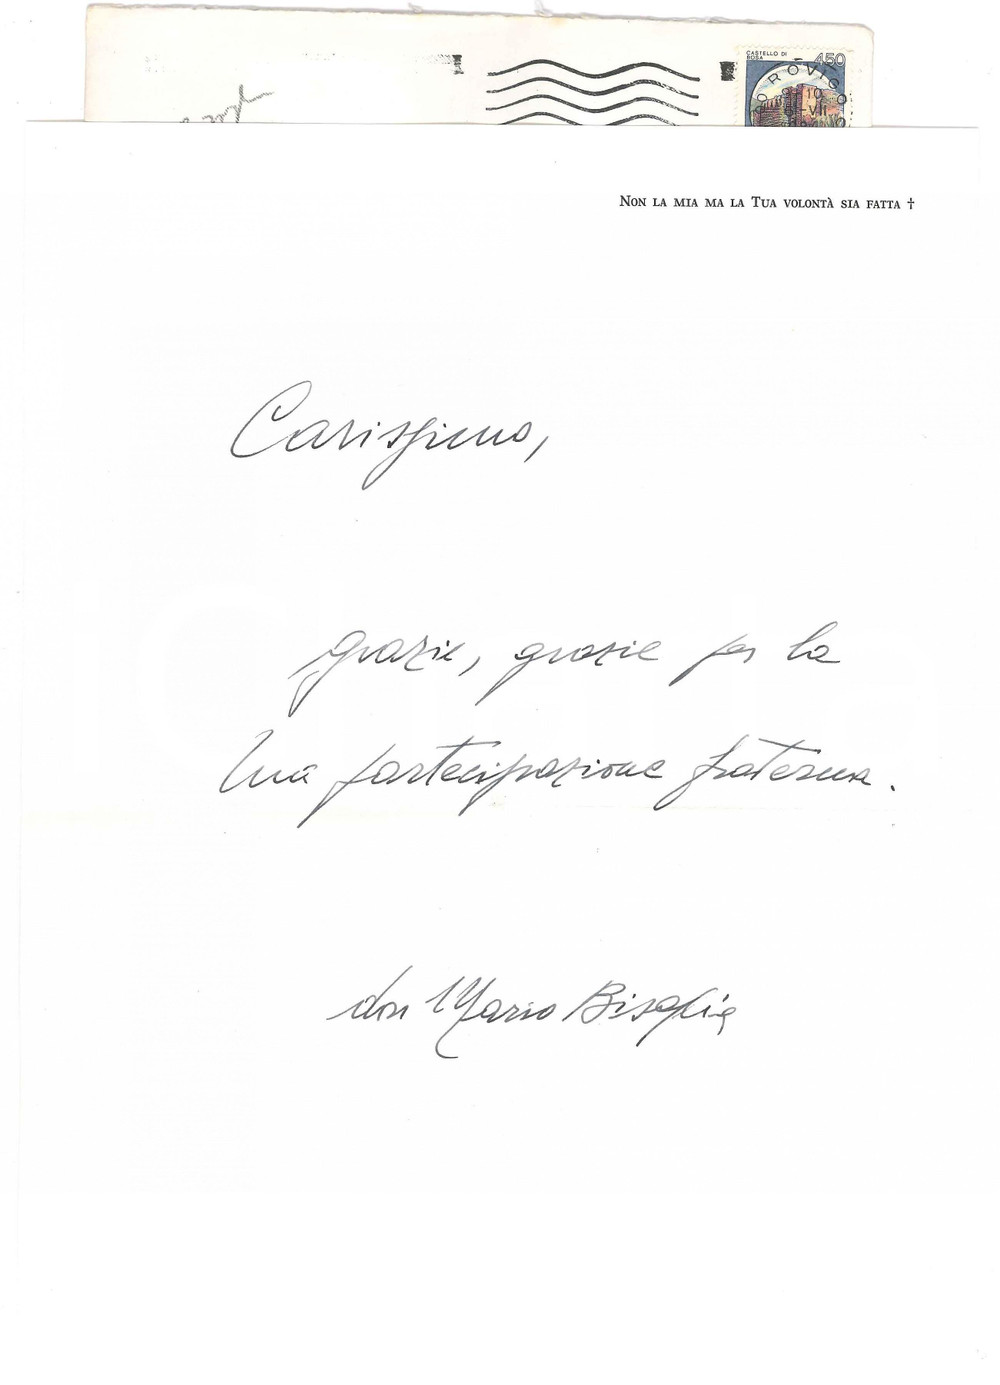 CASTELLO DI
BOSA
450
ROVIGO
Non la mia ma la Tua volontà sia fatta †
Carissimo,
grazie, grazie per la
Tua partecipazione fraterna.
don Mario Bisaglia